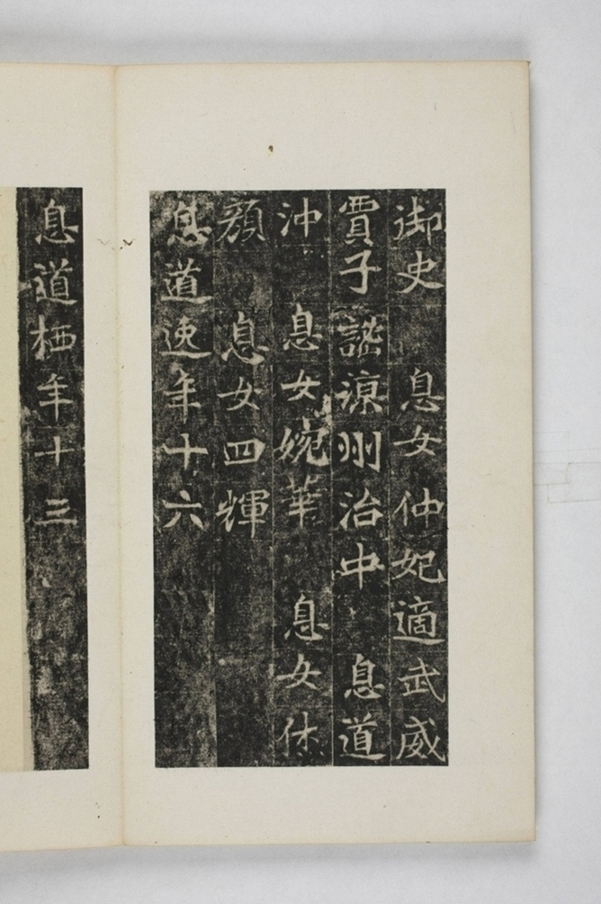 御史　息女仲妃適武威
賈子謐涼州治中　息道
沖　息女婉華　息女休
顏　息女四輝
息道逸年十六
息道栖年十三